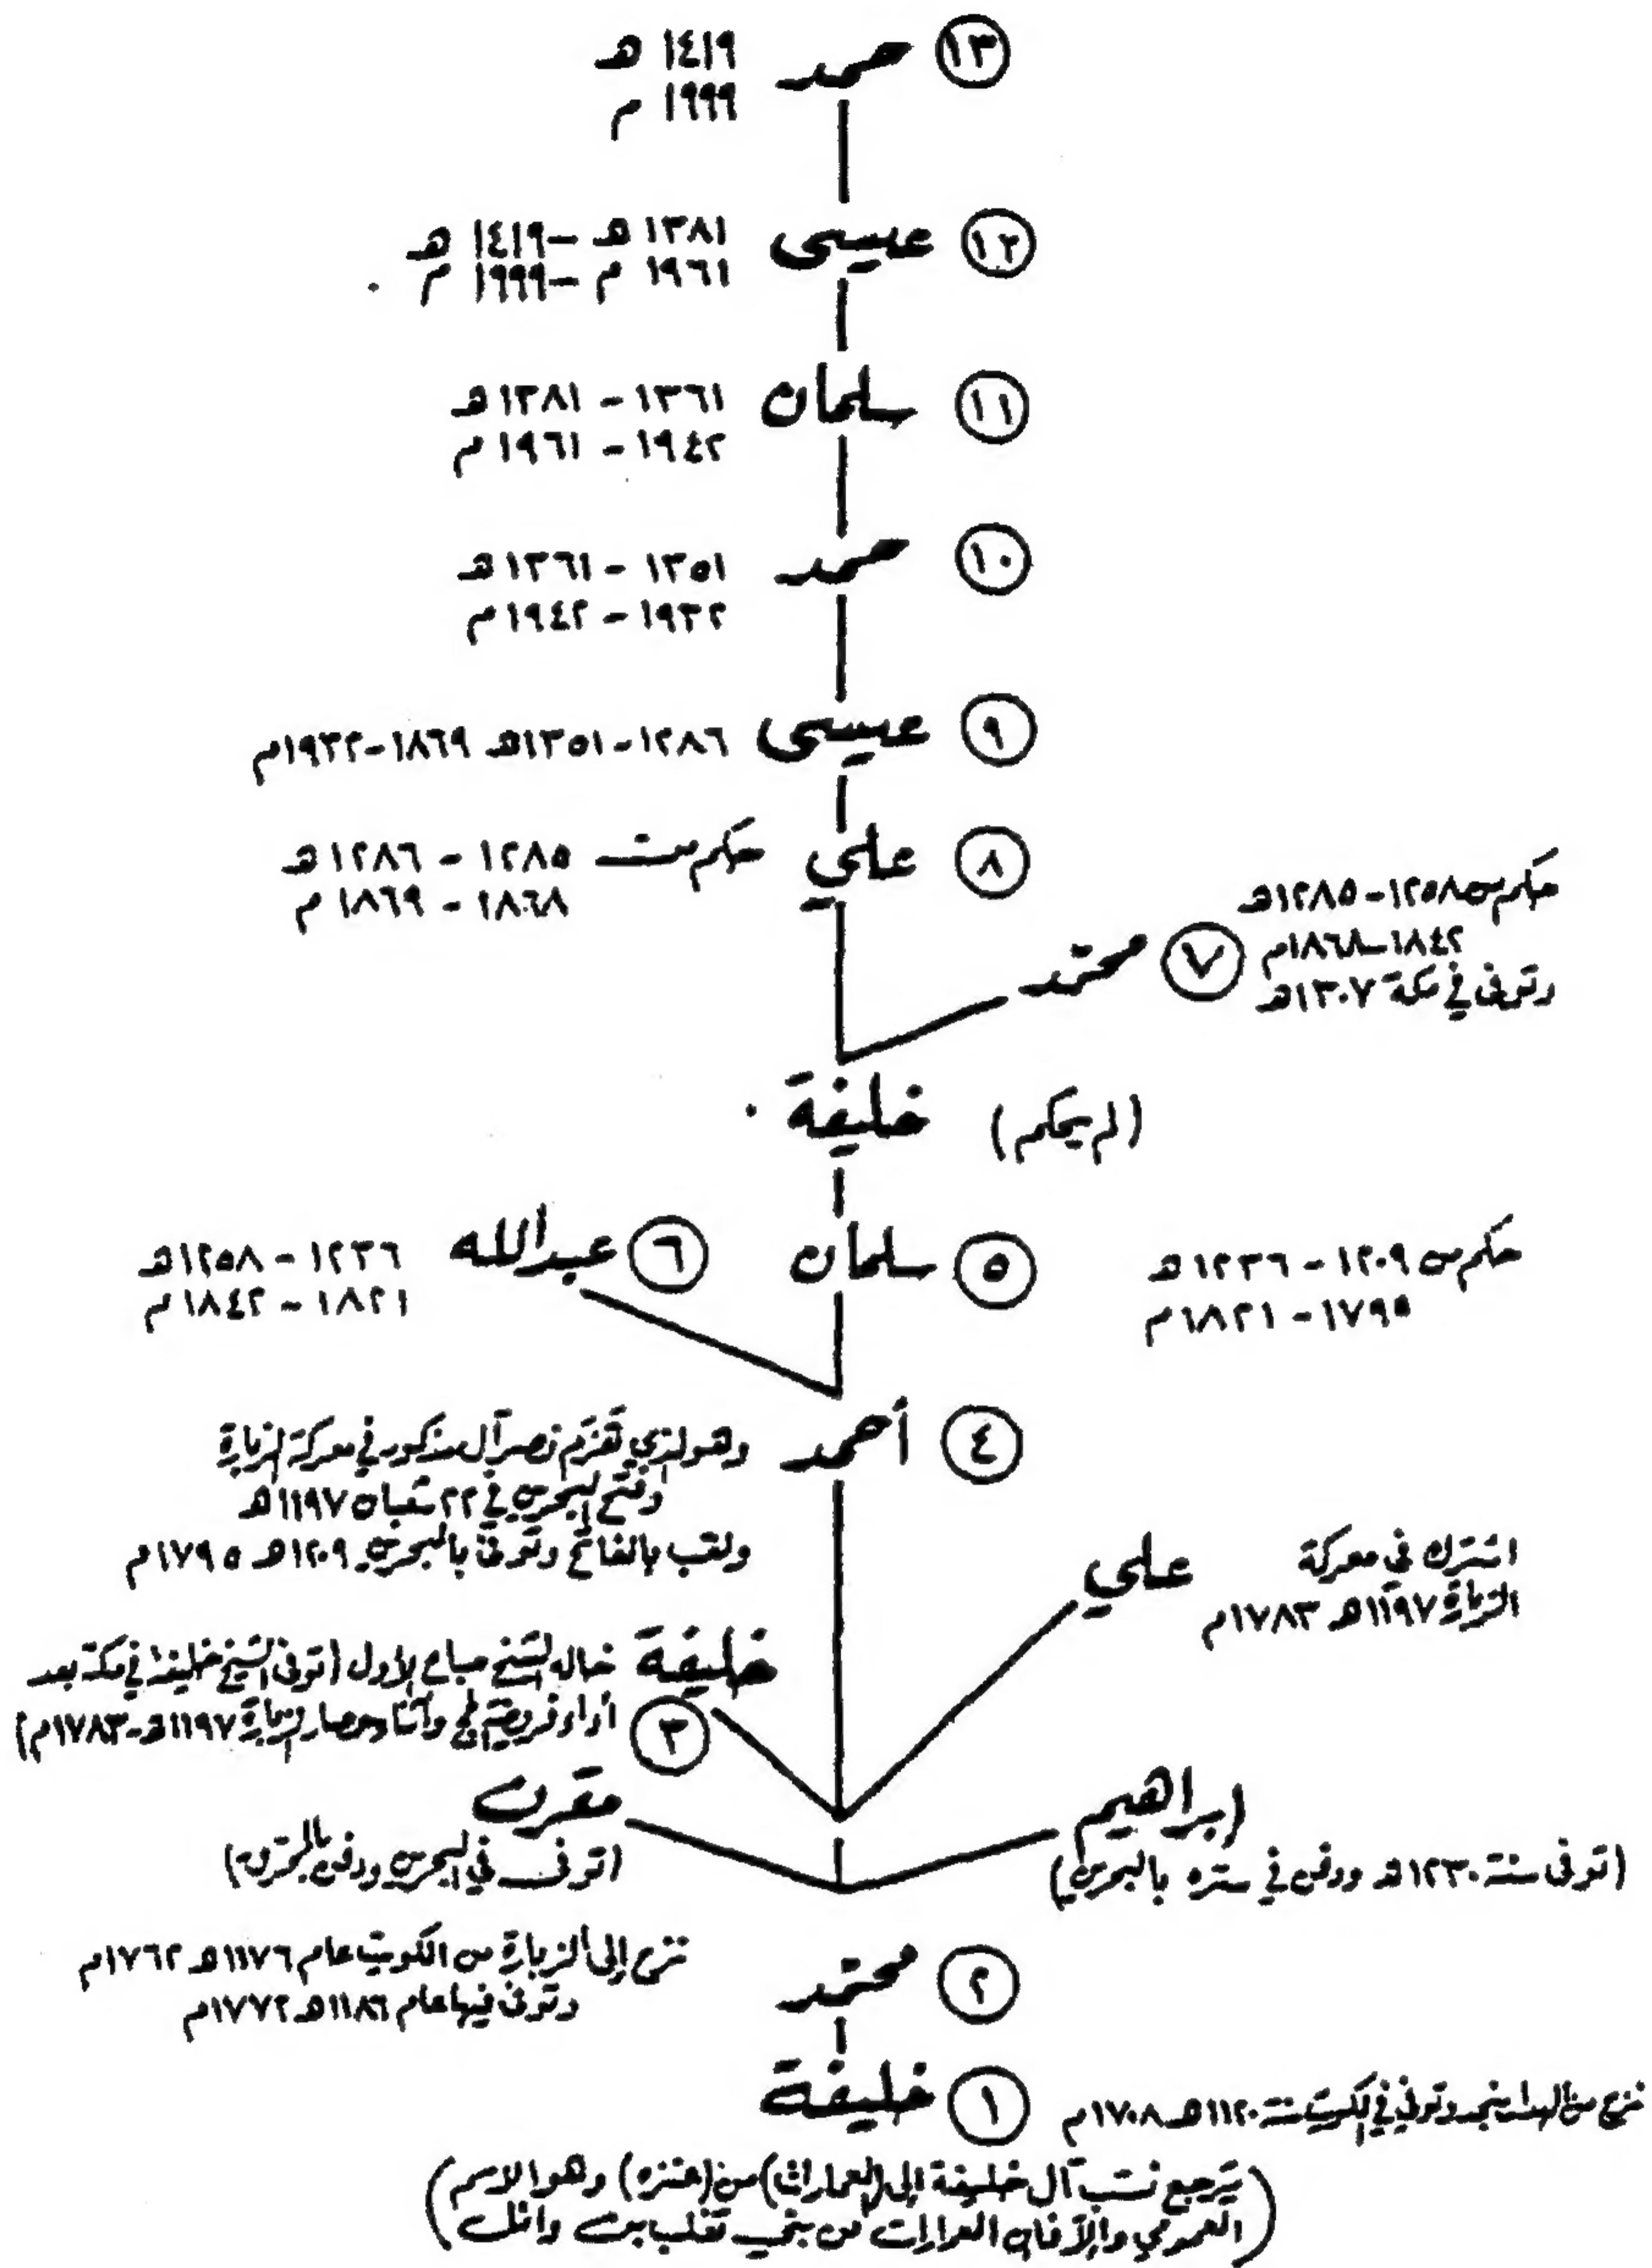 ١٣ حمد ١٤١٩ هـ
١٩٩٩ م
١٢ عيسى ١٣٨١ هـ - ١٤١٩ هـ
١٩٦١ م - ١٩٩٩ م
١١ سلمان ١٣٦١ - ١٣٨١ هـ
١٩٤٢ - ١٩٦١ م
١٠ حمد ١٣٥١ - ١٣٦١ هـ
١٩٣٢ - ١٩٤٢ م
٩ عيسى ١٢٨٦ - ١٣٥١ هـ ١٨٦٩ - ١٩٣٢ م
٨ علي حكم من ١٢٨٥ - ١٢٨٦ هـ
١٨٦٨ - ١٨٦٩ م
حكم من ١٢٥٨ - ١٢٨٥ هـ
١٨٤٢ - ١٨٦٨ م
وتوفى في مكة ١٣٠٧ هـ
٧ محمد
(لم يحكم) خليفة
حكم من ١٢٠٩ - ١٢٣٦ هـ
١٧٩٥ - ١٨٢١ م
٥ سلمان
٦ عبدالله ١٢٣٦ - ١٢٥٨ هـ
١٨٢١ - ١٨٤٢ م
٤ أحمد وهو الذي هزم نصر آل مذكور في معركة الزبارة
وفتح البحرين في ٢٢ شعبان ١١٩٧ هـ
ولقب بالفاتح وتوفى بالبحرين ١٢٠٩ هـ ١٧٩٥ م
علي اشترك في معركة
الزبارة ١١٩٧ هـ ١٧٨٣ م
٣ خليفة خال الشيخ صباح الأول (توفى الشيخ خليفة في مكة بعد
أداء فريضة الحج وأثناء حصار الزبارة ١١٩٧ هـ - ١٧٨٣ م)
مقرن
(توفى في البحرين ودفن)
ابراهيم
(توفى سنة ١٢٣٠ هـ ودفن في ستره بالبحرين)
٢ محمد نزح إلى الزبارة من الكويت عام ١١٧٦ هـ ١٧٦٢ م
وتوفى فيها عام ١١٨٦ هـ ١٧٧٢ م
١ خليفة
نزح من الهدار بنجد وتوفي في الكويت سنة ١١٢٠ هـ ١٧٠٨ م
(يرجع نسب آل خليفة إلى (العمارات) من (عنزه) وهو الاسم
العمومي من بني تغلب بن وائل)